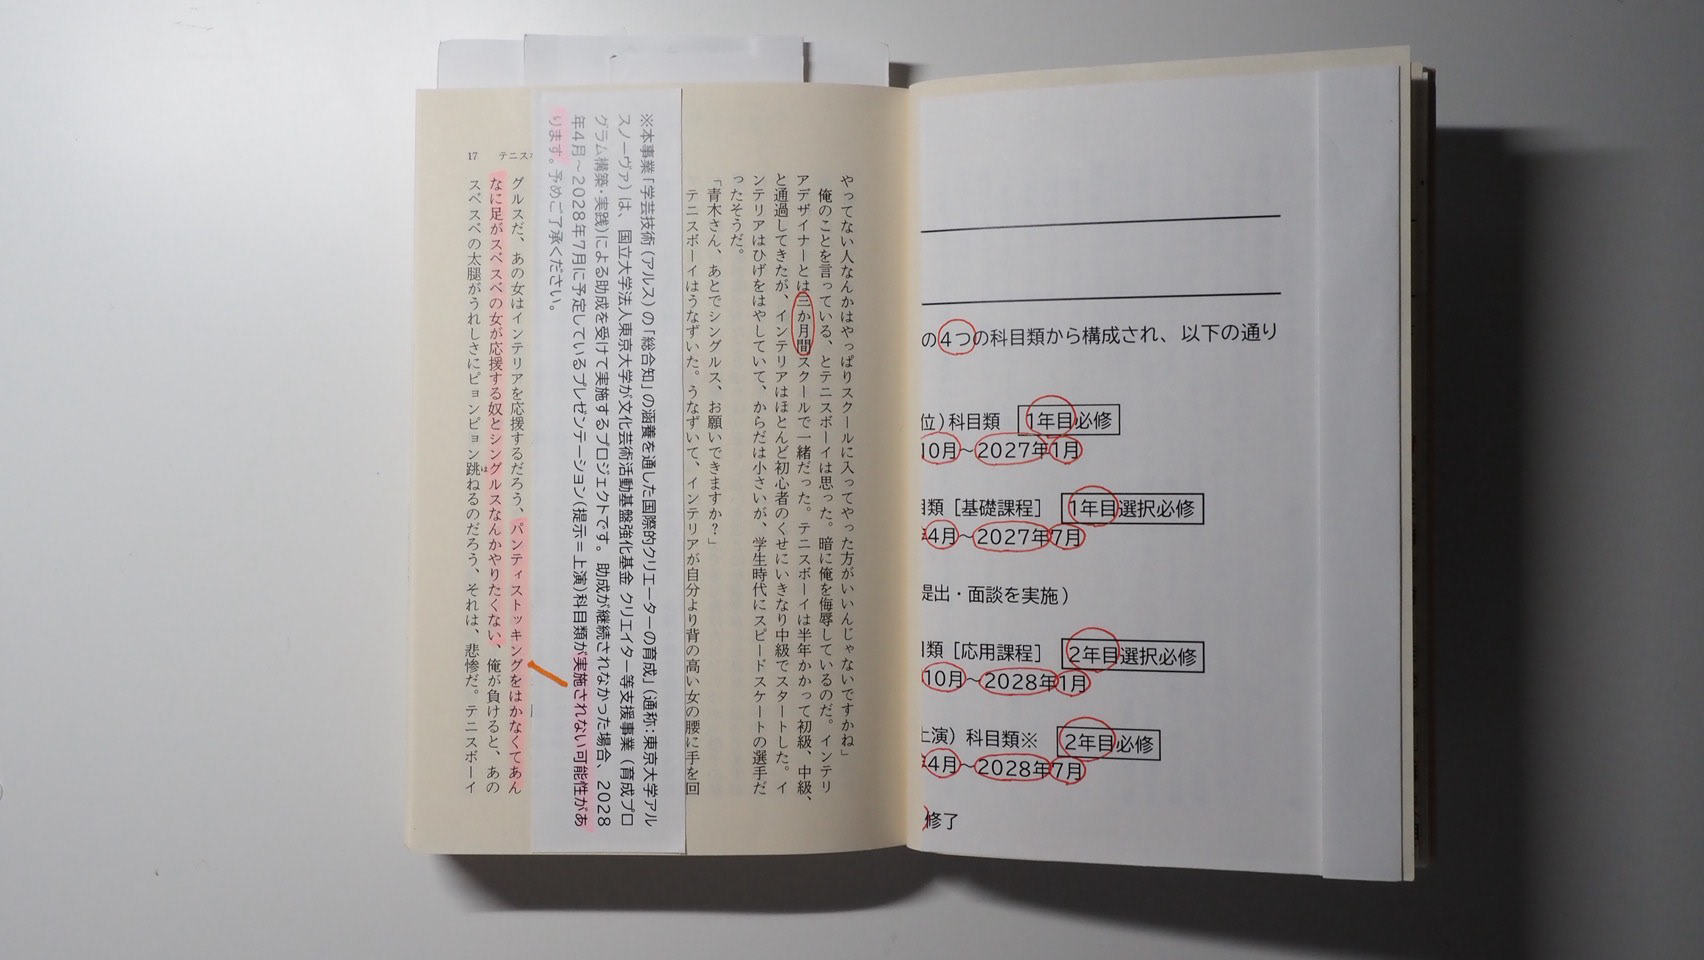 やってない人なんかはやっぱりスクールに入ってやった方がいいんじゃないですかね」
俺のことを言っている、とテニスボーイは思った。暗に俺を侮辱しているのだ。インテリ
アデザイナーとは三か月間スクールで一緒だった。テニスボーイは半年かかって初級、中級、
と通過してきたが、インテリアはほとんど初心者のくせにいきなり中級でスタートした。イ
ンテリアはひげをはやしていて、からだは小さいが、学生時代にスピードスケートの選手だ
ったそうだ。
「青木さん、あとでシングルス、お願いできますか?」
テニスボーイはうなずいた。うなずいて、インテリアが自分より背の高い女の腰に手を回
※本事業「学芸技術(アルス)の「総合知」の涵養を通した国際的クリエーターの育成」(通称:東京大学アル
スノーヴァ)は、国立大学法人東京大学が文化芸術活動基盤強化基金 クリエイター等支援事業(育成プロ
グラム構築・実践)による助成を受けて実施するプロジェクトです。助成が継続されなかった場合、2028
年4月～2028年7月に予定しているプレゼンテーション(提示=上演)科目類が実施されない可能性があ
ります。予めご了承ください。
グルスだ、あの女はインテリアを応援するだろう、パンティストッキングをはかなくてあん
なに足がスベスベの女が応援する奴とシングルスなんかやりたくない、俺が負けると、あの
スベスベの太腿がうれしさにピョンピョン跳ねるのだろう、それは、悲惨だ。テニスボーイ
17 テニス
の4つの科目類から構成され、以下の通り
位)科目類 1年目必修
10月～2027年1月
目類［基礎課程］ 1年目選択必修
4月～2027年7月
提出・面談を実施)
目類［応用課程］ 2年目選択必修
10月～2028年1月
上演)科目類※ 2年目必修
4月～2028年7月
修了